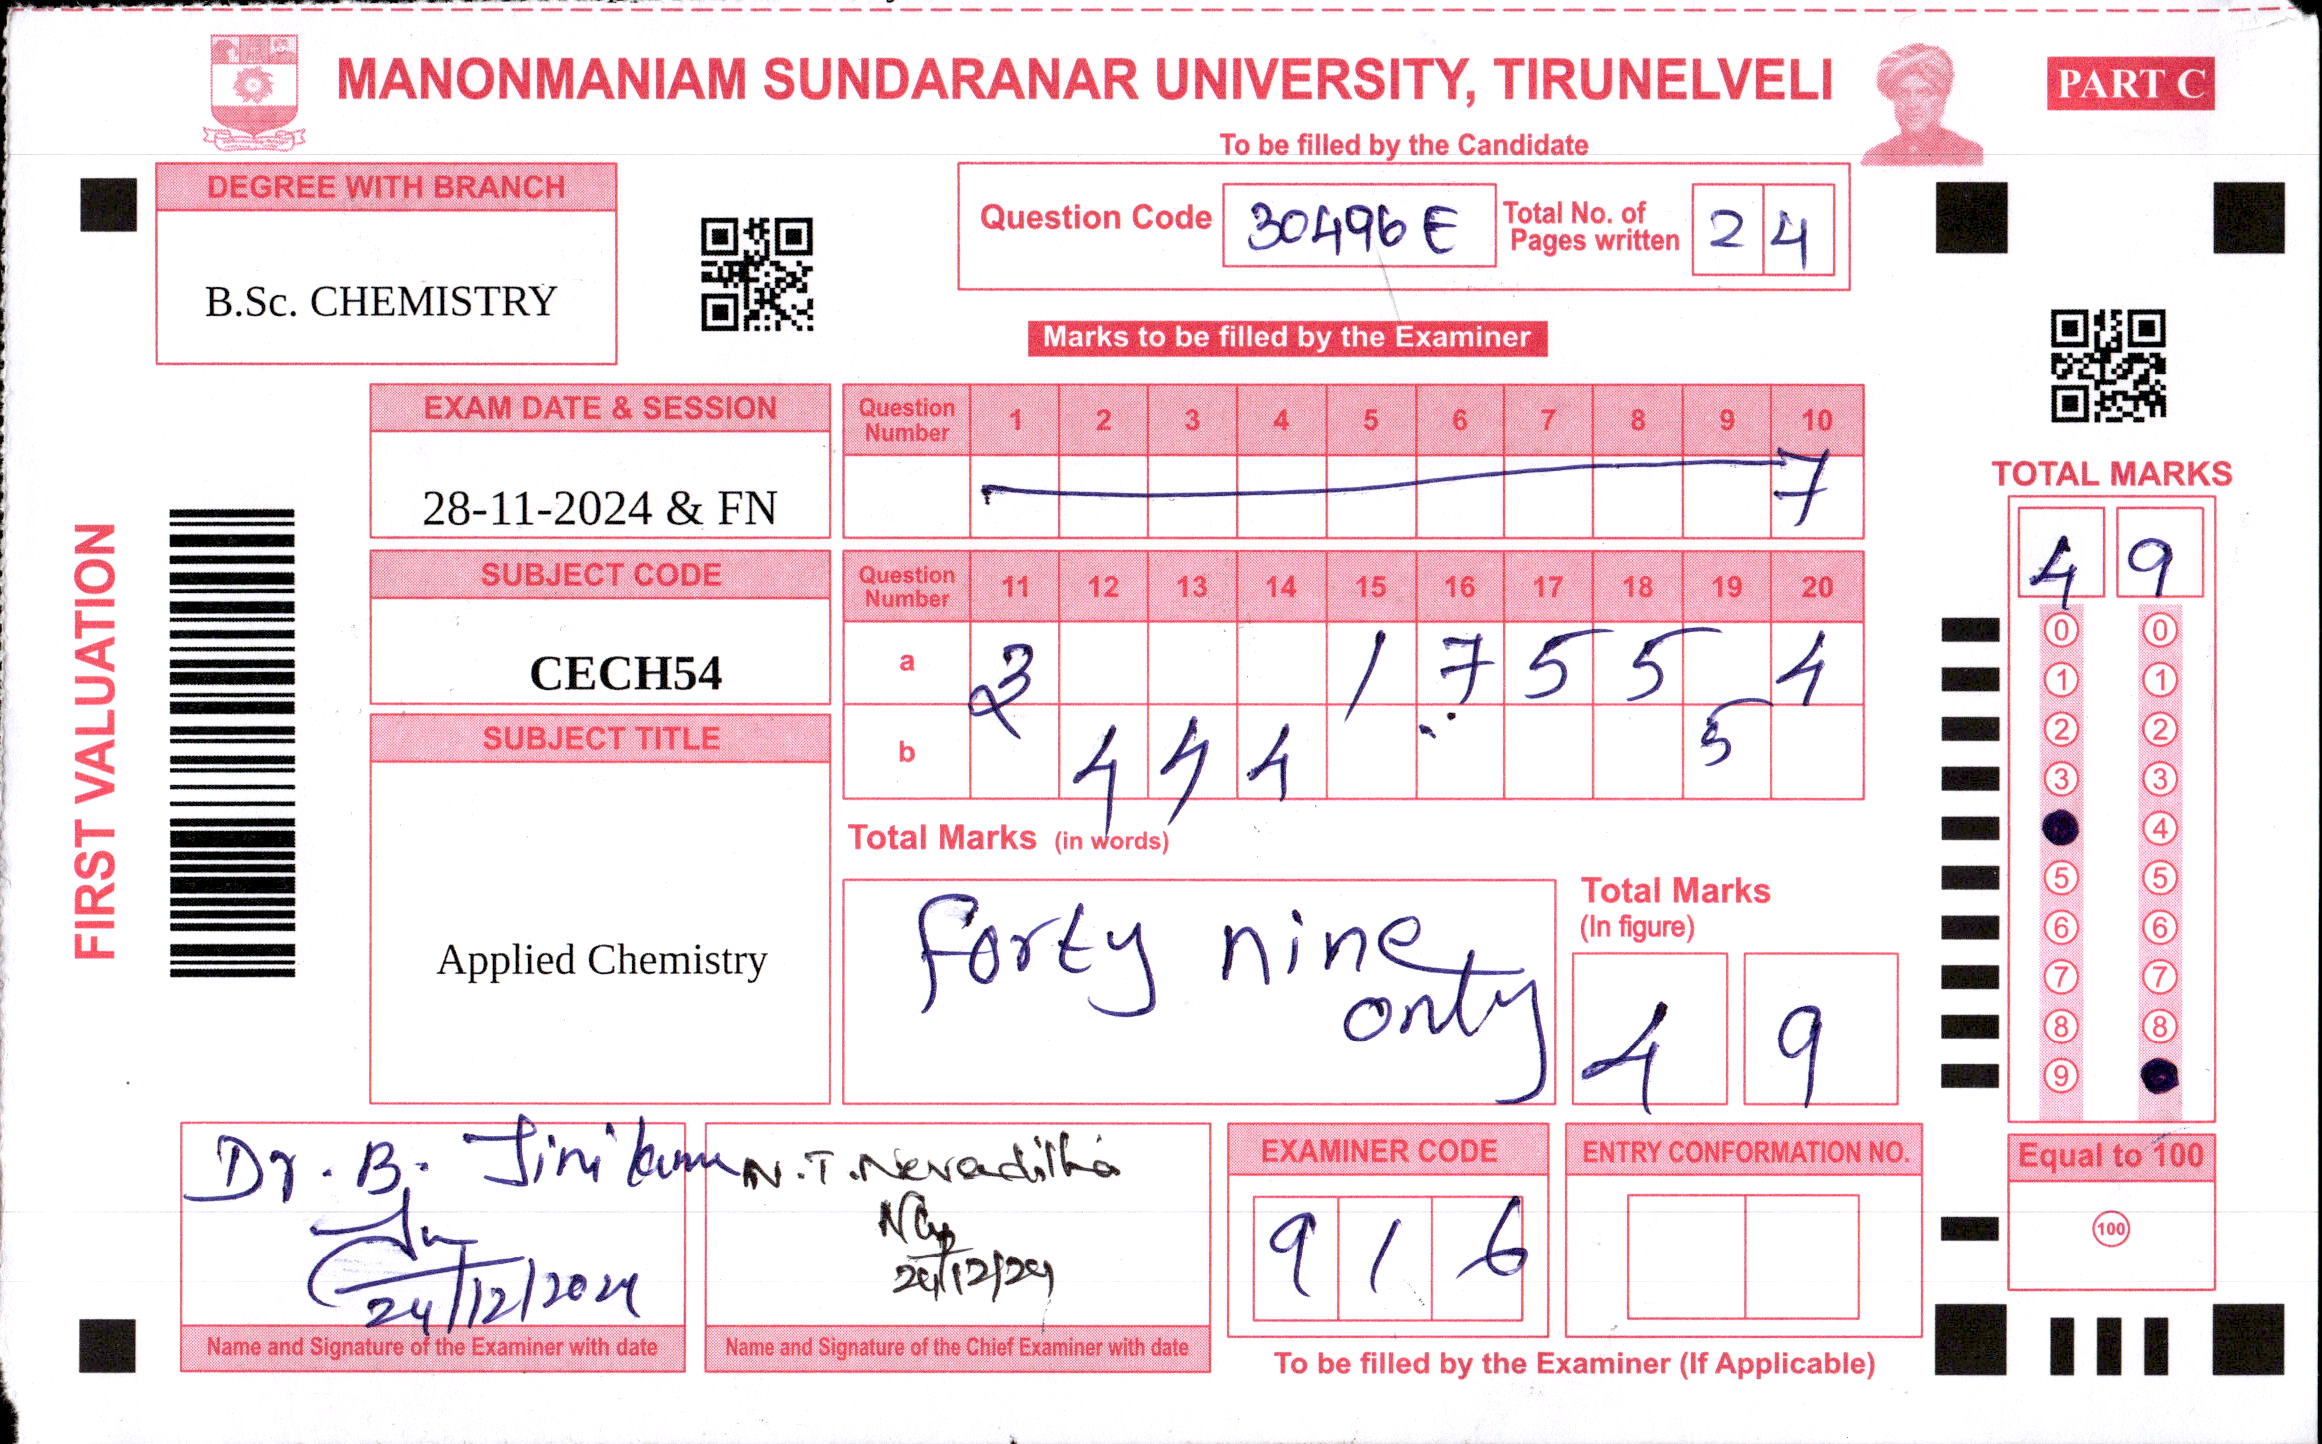 MANONMANIAM SUNDARANAR UNIVERSITY, TIRUNELVELI
PART C
To be filled by the Candidate
DEGREE WITH BRANCH
B.Sc. CHEMISTRY
Question Code 30496 E Total No. of Pages written 2 4
Marks to be filled by the Examiner
FIRST VALUATION
EXAM DATE & SESSION
28-11-2024 & FN
SUBJECT CODE
CECH54
SUBJECT TITLE
Applied Chemistry
Question Number 1 2 3 4 5 6 7 8 9 10
7
Question Number 11 12 13 14 15 16 17 18 19 20
a 3 1 7 5 5 4
b 4 4 4 5
Total Marks (in words)
Forty nine
only
Total Marks
(In figure)
4 9
TOTAL MARKS
4 9
0 0
1 1
2 2
3 3
4
5 5
6 6
7 7
8 8
9
Equal to 100
100
Dr. B.
24/12/2024
Name and Signature of the Examiner with date
N.T.
24/12/24
Name and Signature of the Chief Examiner with date
EXAMINER CODE
9 1 6
ENTRY CONFORMATION NO.
To be filled by the Examiner (If Applicable)